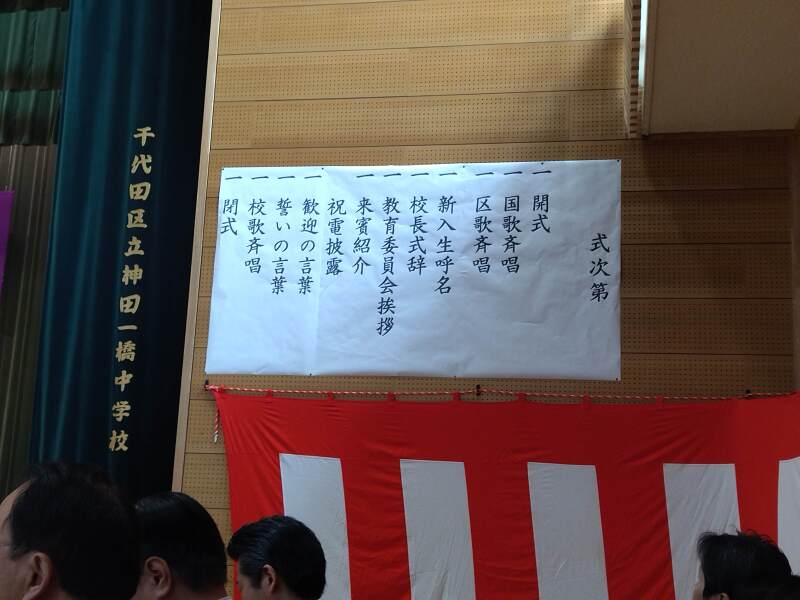 式次第
一 開式
国歌斉唱
一 区歌斉唱
一 新入生呼名
一 校長式辞
一 教育委員会挨拶
一 来賓紹介
祝電披露
一 歓迎の言葉
一 誓いの言葉
一 校歌斉唱
一 閉式
千代田区立神田一橋中学校